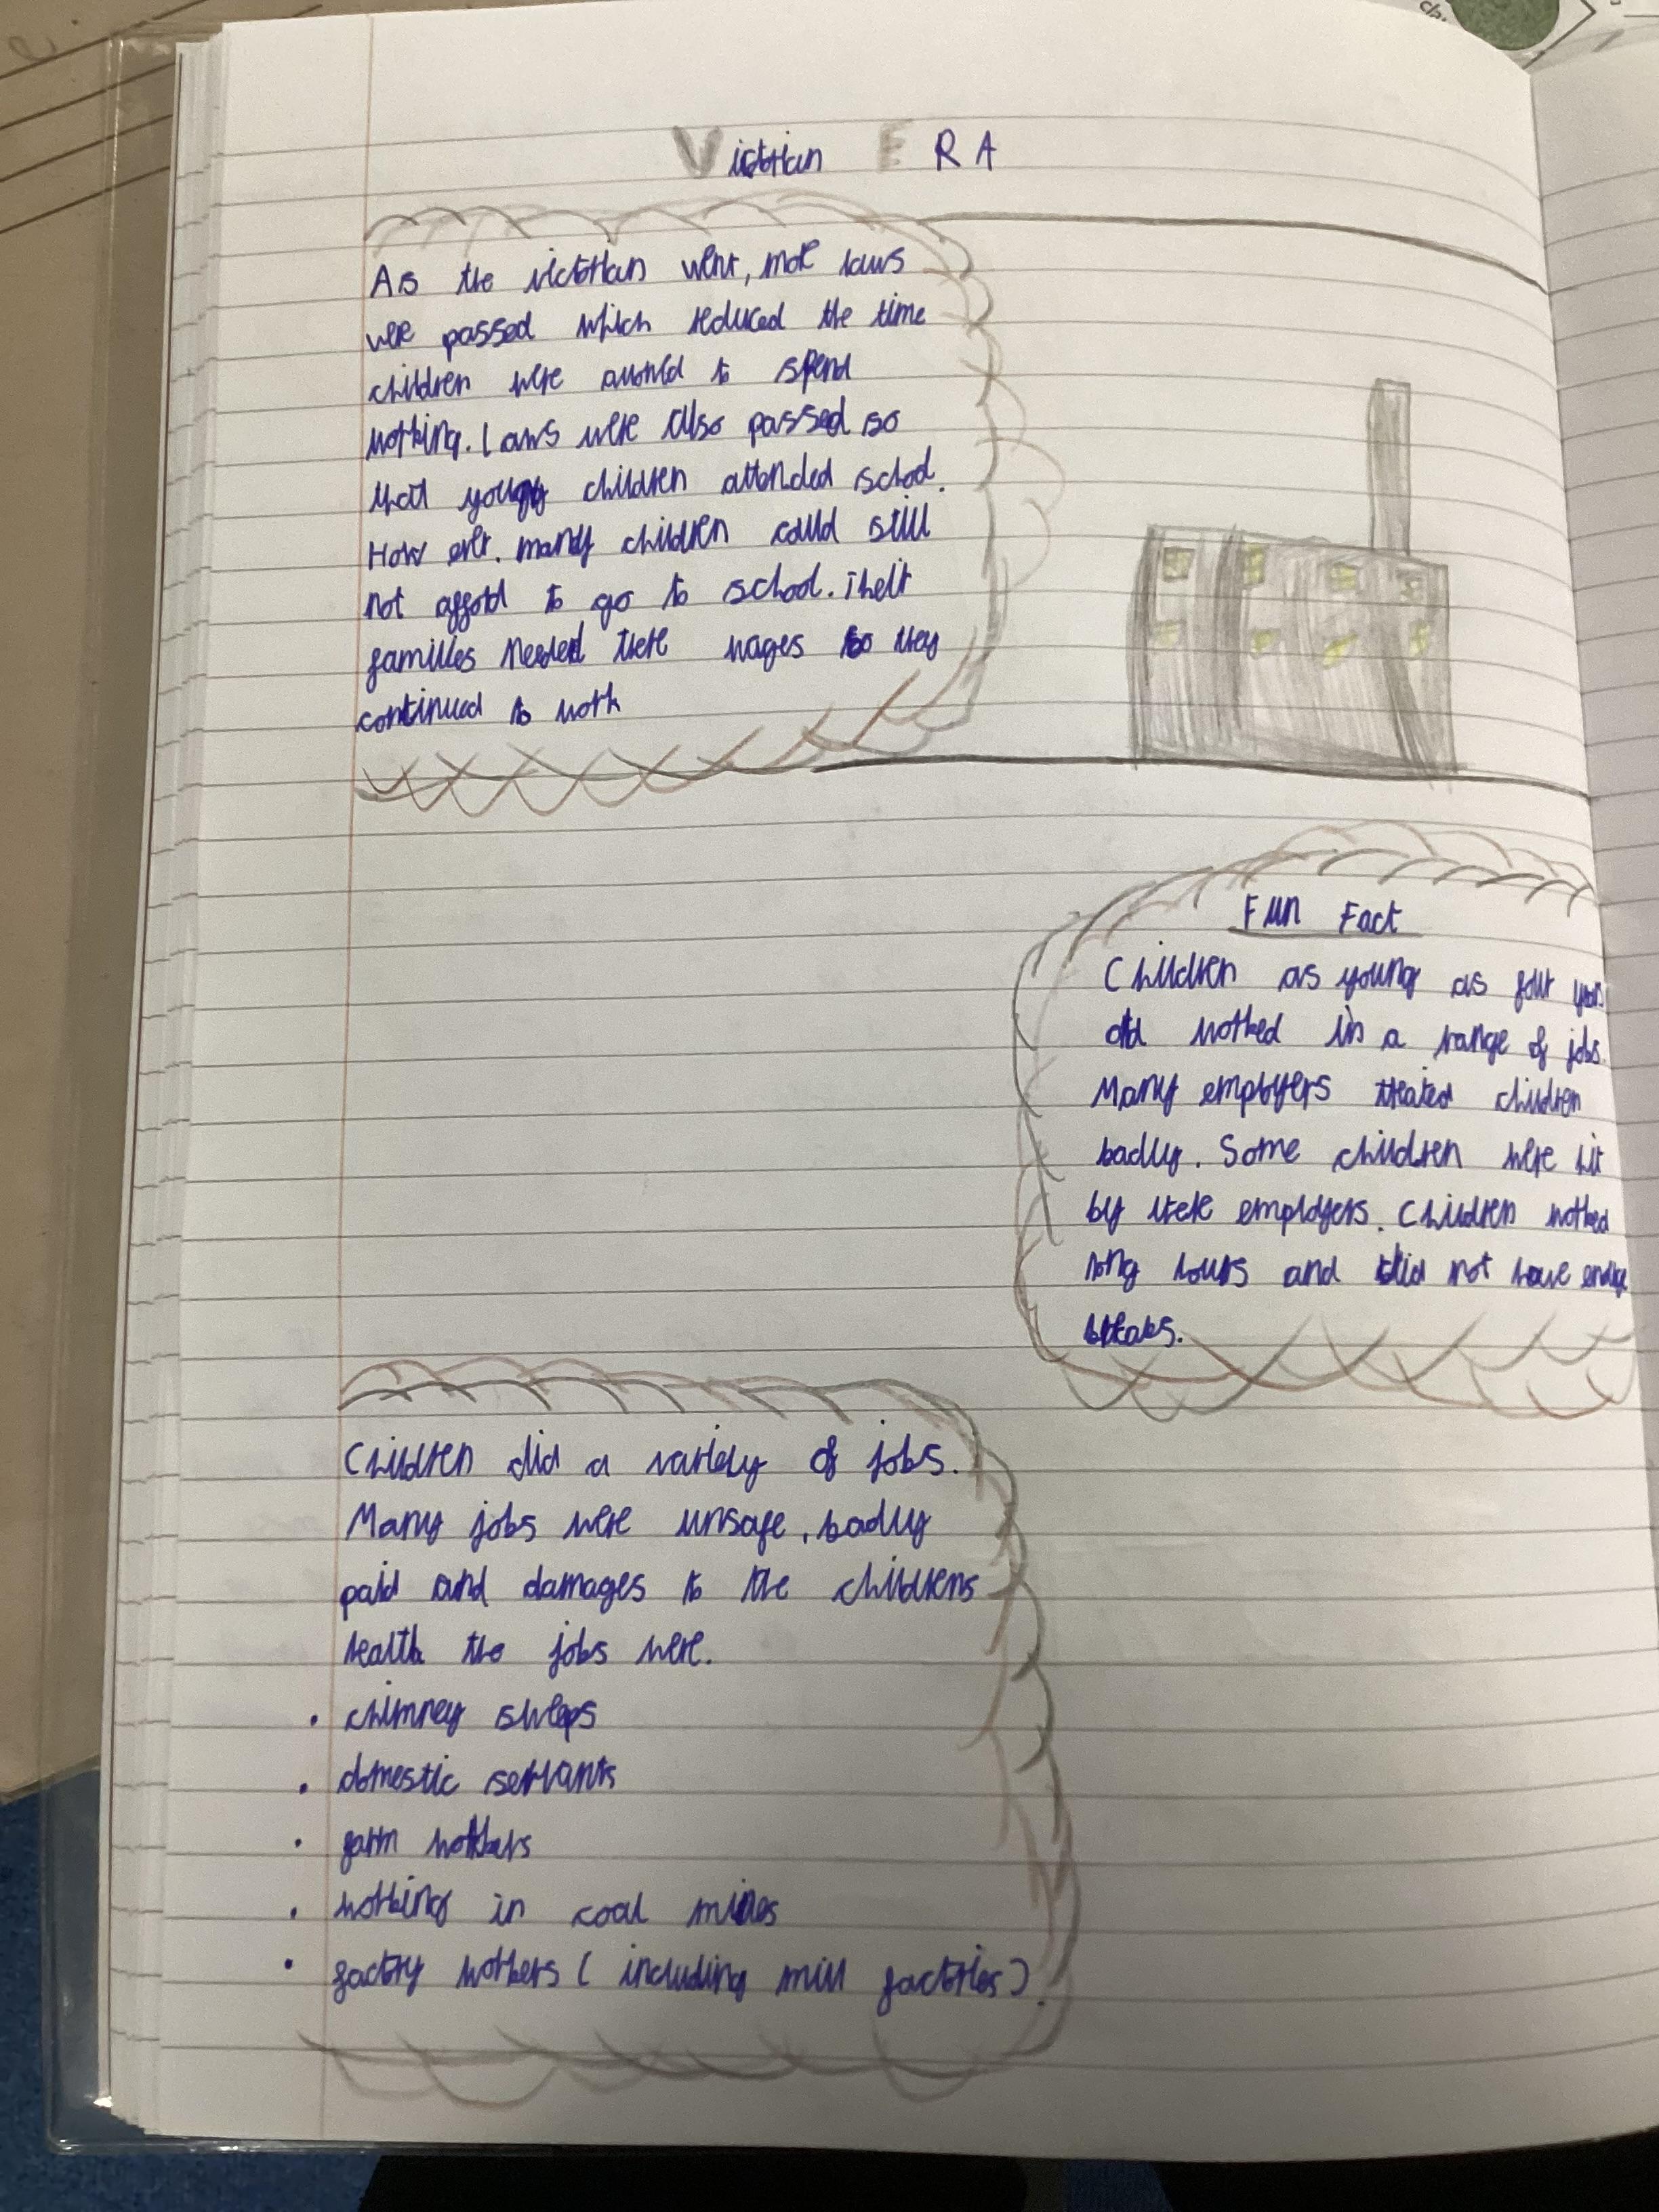 Victorian ERA
As the victorian went, more laws
were passed which reduced the time
children were allowed to spend
working. Laws were also passed so
that young children attended school.
How ever. many children could still
not afford to go to school. Their
families needed there wages so they
continued to work
Fun Fact
Children as young as four years
old worked in a range of jobs.
Many employers treated children
badly. Some children were hit
by there employers. Children worked
long hours and did not have
breaks.
Children did a variety of jobs.
Many jobs were unsafe, badly
paid and damages to the childrens
health the jobs were.
• chimney sweeps
• domestic servants
• farm workers
• working in coal mines
• factory workers (including mill factories).